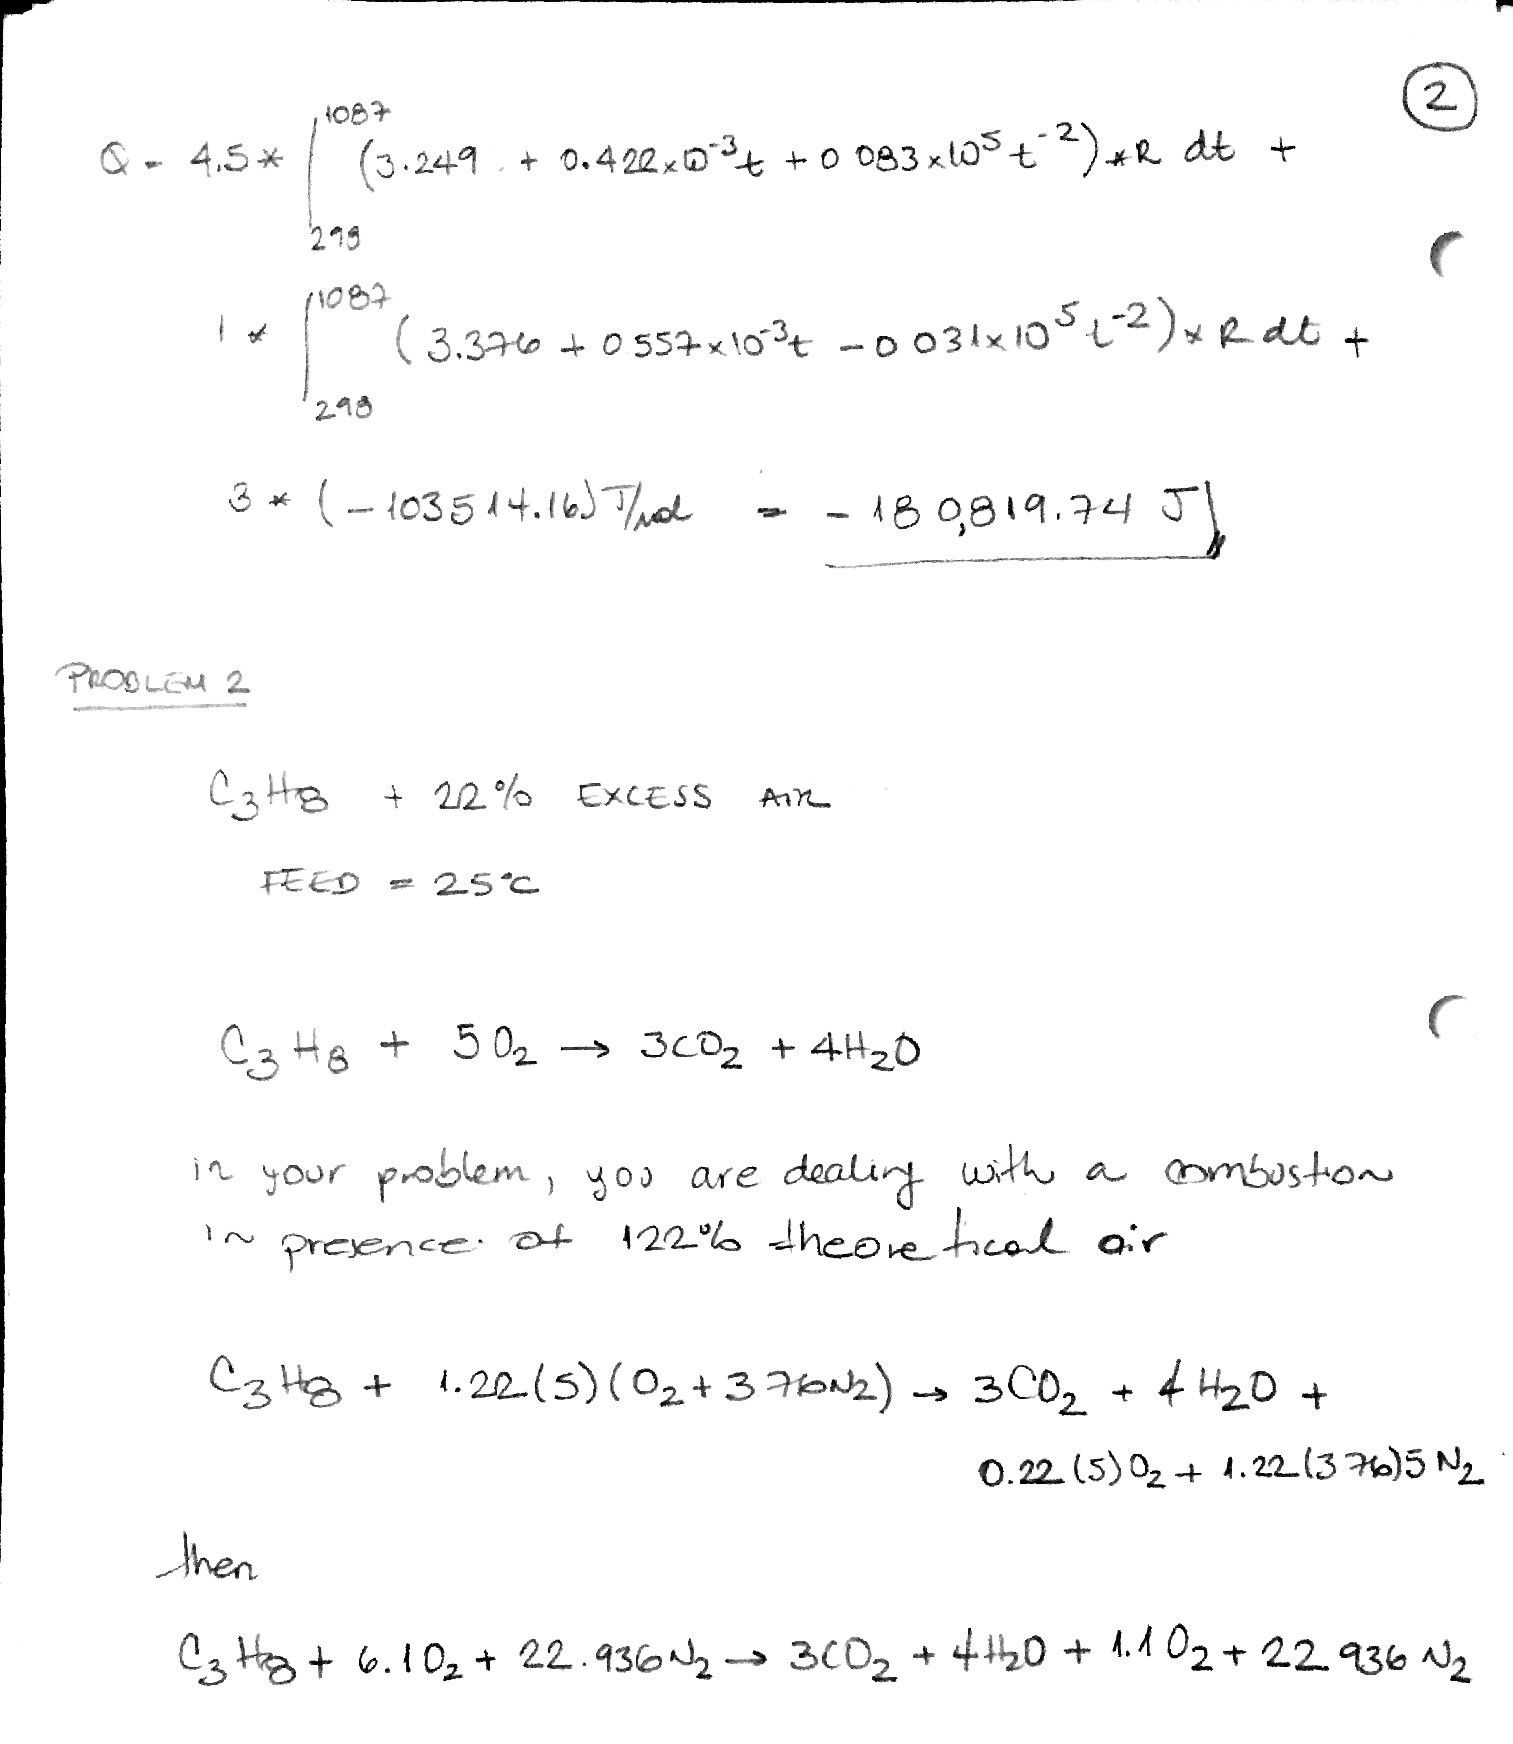 2
Q = 4.5 * ∫ 1087 298 (3.249 + 0.422x10⁻³t + 0.083x10⁵ t⁻²) * R dt +
1 * ∫ 1087 298 (3.376 + 0557x10⁻³t - 0 031x10⁵ t⁻²) * R dt +
3 * (-103514.16) J/mol = -180,819.74 J
PROBLEM 2
C₃H₈ + 22% EXCESS AIR
FEED = 25°C
C₃H₈ + 5O₂ → 3CO₂ + 4H₂O
in your problem, you are dealing with a combustion
in presence of 122% theoretical air
C₃H₈ + 1.22(5)(O₂ + 3 76N₂) → 3CO₂ + 4H₂O +
0.22(5)O₂ + 1.22(3 76)5 N₂
then
C₃H₈ + 6.1O₂ + 22.936N₂ → 3CO₂ + 4H₂O + 1.1O₂ + 22 936 N₂